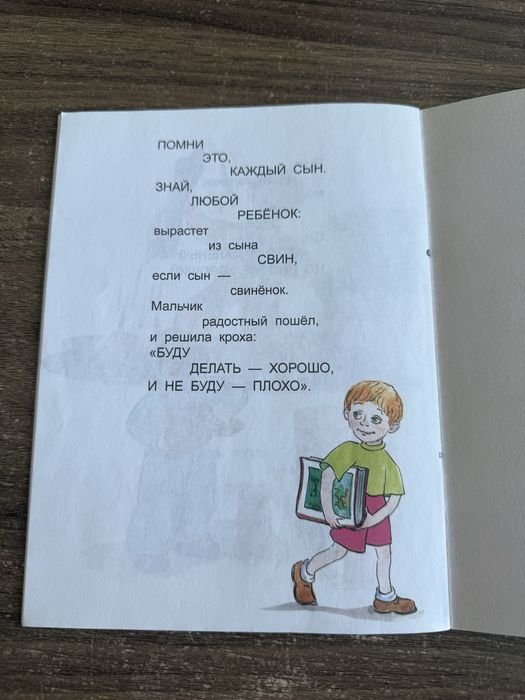 ПОМНИ
ЭТО,
КАЖДЫЙ СЫН.
ЗНАЙ,
ЛЮБОЙ
РЕБЁНОК:
вырастет
из сына
СВИН,
если сын —
свинёнок.
Мальчик
радостный пошёл,
и решила кроха:
«БУДУ
ДЕЛАТЬ — ХОРОШО,
И НЕ БУДУ — ПЛОХО».